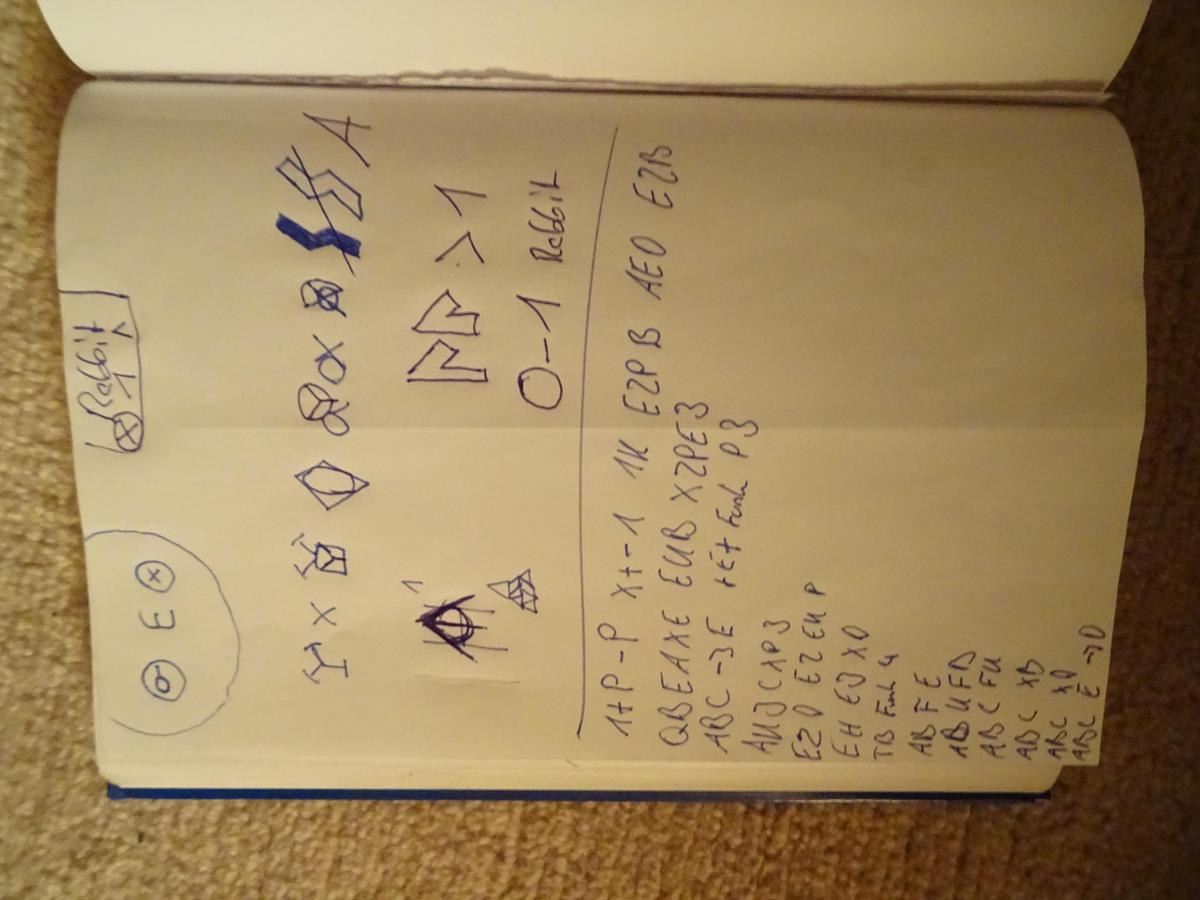 Rabbit
1
E
x
A
1
> 1
0-1 Rabbit
1+P-P X+-1 1K EZPB AEO EZB
QBEAXE EUB XZPE3
ABC →3E +E+Funk P3
AUJCXP3
EZO EZEUP
EH EJ XO
TB Funk 4
AB F E
AB U FB
ABC FU
ABC XB
ABC XO
ABC E →D